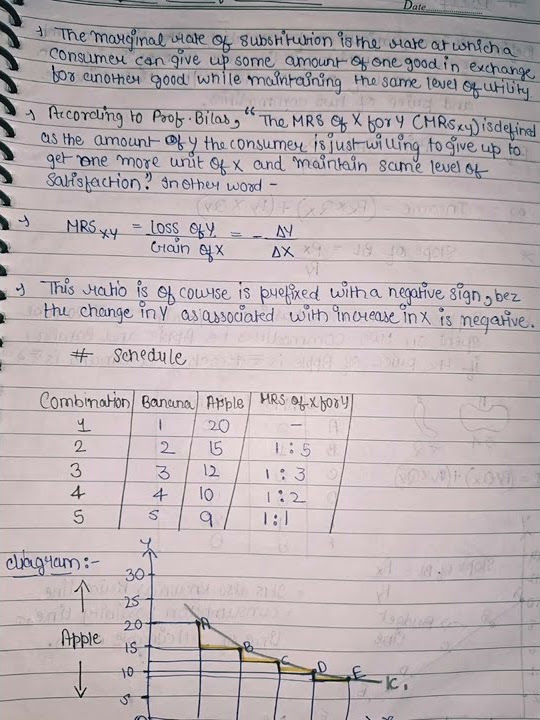 Date
→ The marginal rate of substitution is the rate at which a
consumer can give up some amount of one good in exchange
for another good while maintaining the same level of utility
→ According to Prof. Bilas, "The MRS of X for Y (MRSxy) is defined
as the amount of Y the consumer is just willing to give up to
get one more unit of X and maintain same level of
satisfaction." In other word -
→ MRSxy = Loss of Y / Gain of X = - ΔY / ΔX
→ This ratio is of course is prefixed with a negative sign, bcz
the change in Y as associated with increase in X is negative.
# Schedule
Combination Banana Apple MRS of X for Y
1 1 20 -
2 2 15 1:5
3 3 12 1:3
4 4 10 1:2
5 5 9 1:1
diagram:-
Y
30
25
20 A
Apple
15 B
C
10 D E
IC.
5